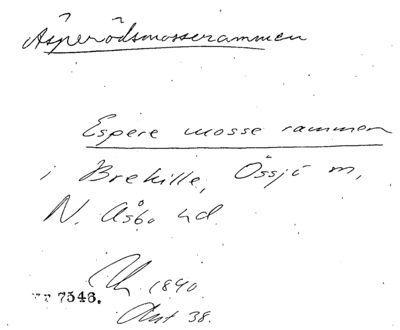 Åsperödsmosserammen
Espere mosse rammen
i Brekille, Össjö m,
N. Åsbo hd
1840
7546.
Akt 38.